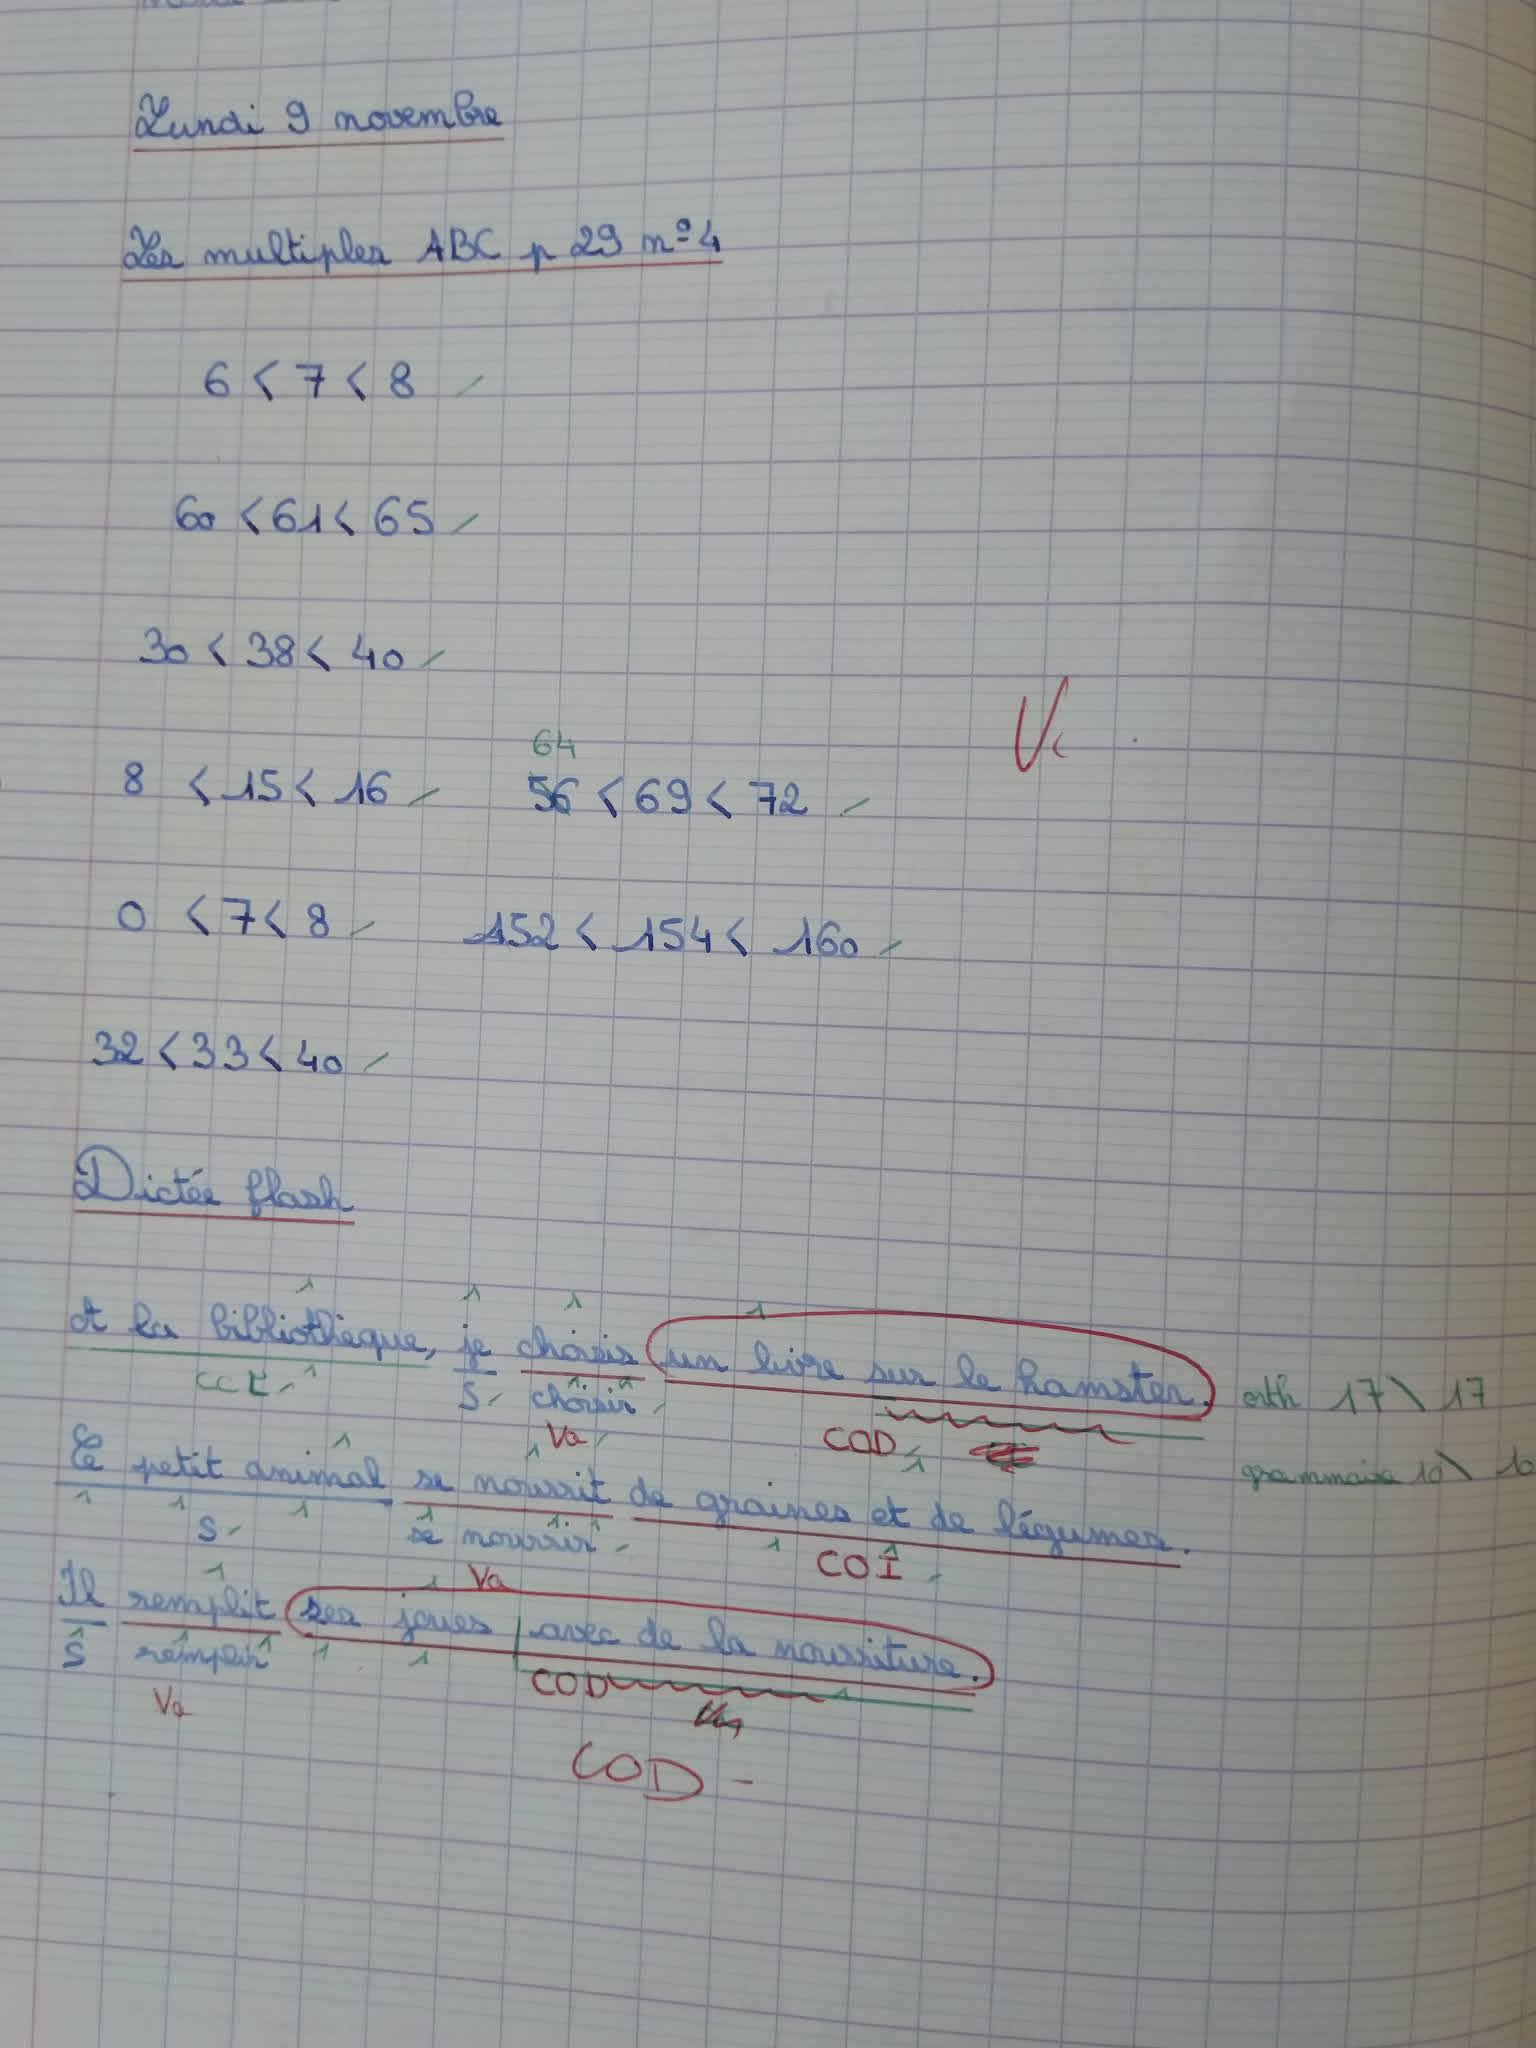 Lundi 9 novembre
Les multiples ABC p 29 n°4
6 < 7 < 8
60 < 61 < 65
30 < 38 < 40
64
8 < 15 < 16 56 < 69 < 72
0 < 7 < 8 152 < 154 < 160
32 < 33 < 40
Dictée flash
A la bibliothèque, je choisis un livre sur le hamster. orth 17\17
S choisir
Va COD
Ce petit animal se nourrit de graines et de légumes. grammaire 10\10
S se nourrir COI
Va
Il remplit ses joues avec de la nourriture.
S remplir COD
Va
COD